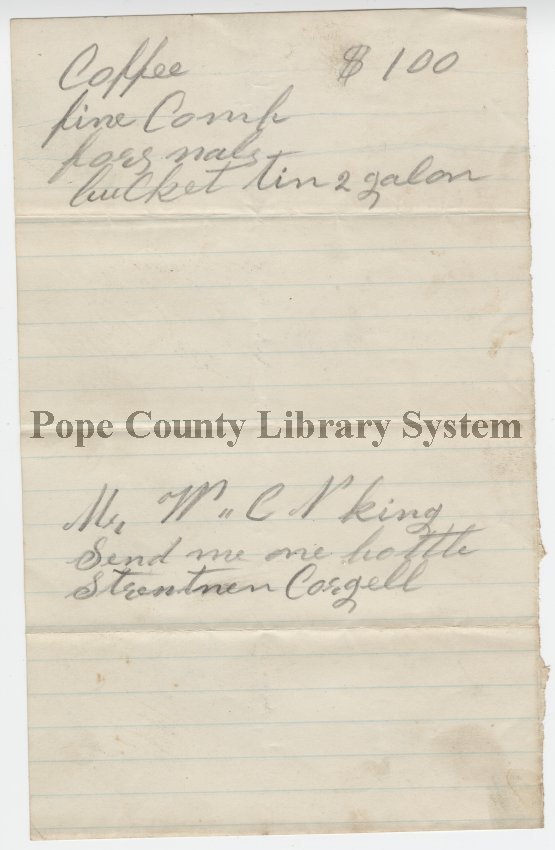 Coffee $ 100
fine Comb
bucket tin 2 galon
Pope County Library System
Mr, W" C N king
Send me one bottle